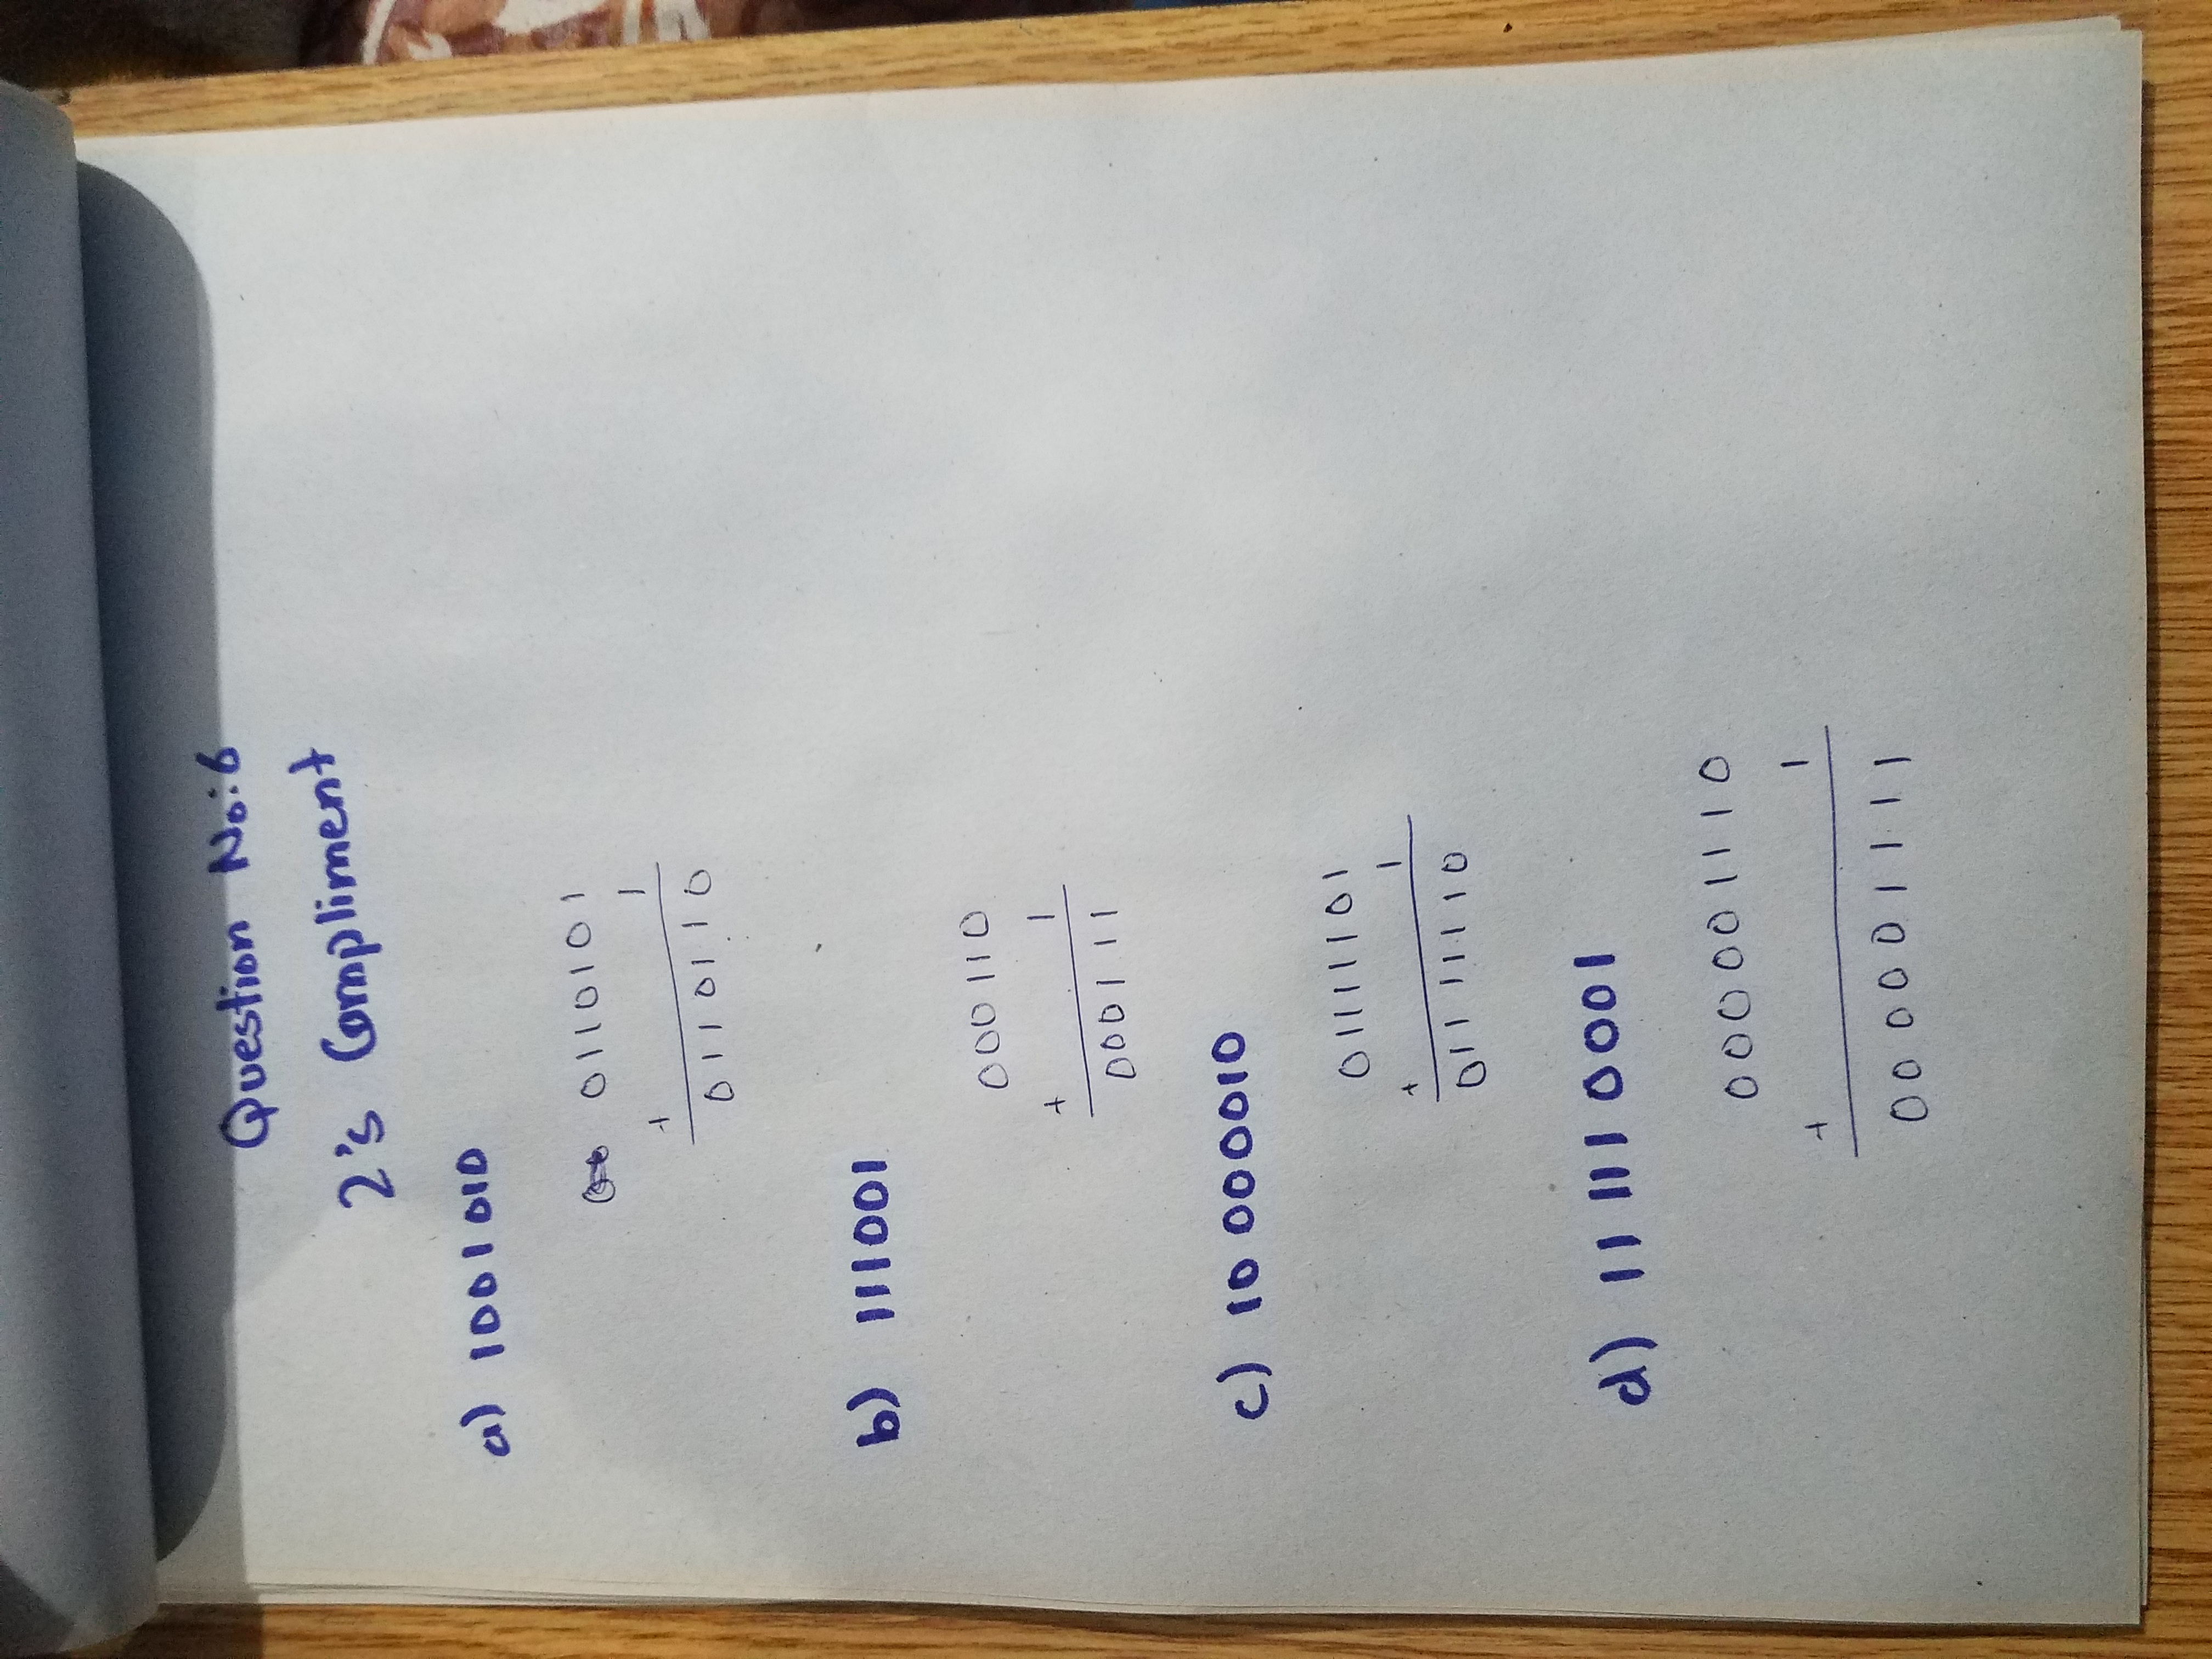 Question No:6
2's Compliment
a) 1001010
0110101
+ 1
0110110
b) 111001
000110
+ 1
000111
c) 10000010
01111101
+ 1
01111110
d) 111110001
000001110
+ 1
000001111